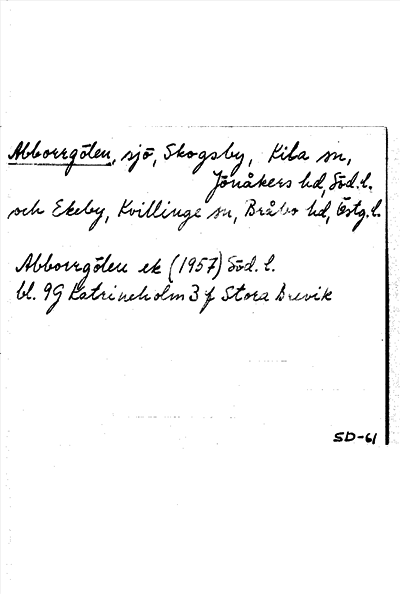 Abborrgölen, sjö, Skogsby, Kila sn,
Jönåkers hd, Söd. l.
och Ekeby, Kvillinge sn, Bråbo hd, Östg. l.
Abborrgölen ek (1957) Söd. l.
bl. 9G Katrineholm 3 f Stora Brevik
SD-61